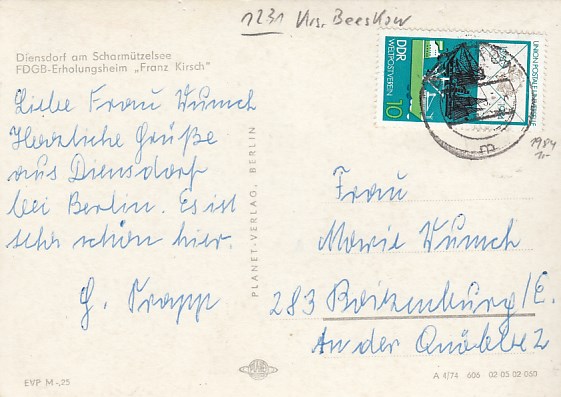 1231 Krs. Beeskow
Diensdorf am Scharmützelsee
FDGB-Erholungsheim „Franz Kirsch"
Liebe Frau Wunsch
Herzliche Grüße
aus Diensdorf
bei Berlin. Es ist
sehr schön hier.
G. Trapp
PLANET-VERLAG, BERLIN
DDR
WELTPOSTVEREIN
10
UNION POSTALE UNIVERSELLE
1984
Frau
Marie Wunsch
283 Boizenburg/E.
An der Quöbbe 2
EVP M -,25
PLANET
A 4/74 606 02 05 02 060